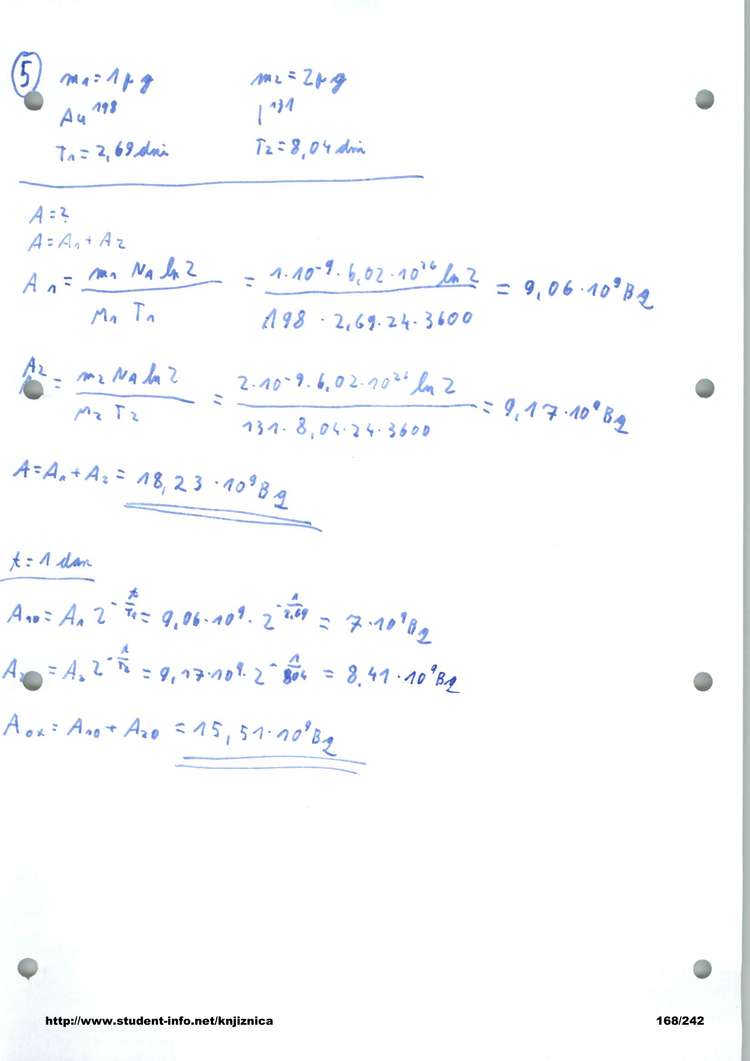 5 m₁ = 1 μg m₂ = 2 μg
Au¹⁹⁸ I¹³¹
T₁ = 2,69 dni T₂ = 8,04 dni
A = ?
A = A₁ + A₂
A₁ = m₁ NA ln 2 / M₁ T₁ = 1·10⁻⁹·6,02·10²⁶ ln 2 / 198·2,69·24·3600 = 9,06·10⁹ Bq
A₂ = m₂ NA ln 2 / M₂ T₂ = 2·10⁻⁹·6,02·10²⁶ ln 2 / 131·8,04·24·3600 = 9,17·10⁹ Bq
A = A₁ + A₂ = 18,23·10⁹ Bq
t = 1 dan
A₁₀ = A₁ 2^(-t/T₁) = 9,06·10⁹·2^(-1/2,69) = 7·10⁹ Bq
A₂ = A₂ 2^(-t/T₂) = 9,17·10⁹·2^(-1/804) = 8,41·10⁹ Bq
A = A₁₀ + A₂₀ = 15,51·10⁹ Bq
http://www.student-info.net/knjiznica 168/242